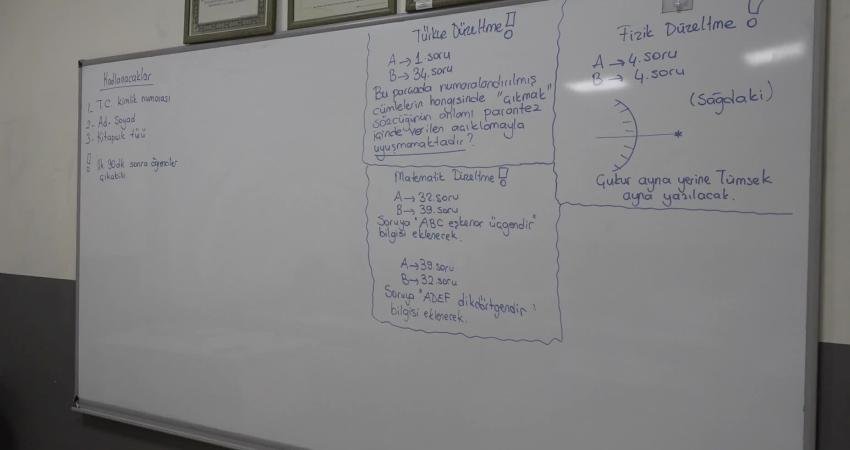 Kodlanacaklar
1- T.C. kimlik numarası
2- Ad- Soyad
3- Kitapçık türü
! İlk 90dk sonra öğrenciler
çıkabilir
Türkçe Düzeltme !
A → 1. soru
B → 34. soru
Bu parçada numaralandırılmış
cümlelerin hangisinde "çıkmak"
sözcüğünün anlamı parantez
içinde verilen açıklamayla
uyuşmamaktadır?
Matematik Düzeltme !
A → 32. soru
B → 39. soru
Soruya "ABC eşkenar üçgendir"
bilgisi eklenecek.
A → 39. soru
B → 32. soru
Soruya "ADEF dikdörtgendir"
bilgisi eklenecek.
Fizik Düzeltme !
A → 4. soru
B → 4. soru
(Sağdaki)
Çukur ayna yerine Tümsek
ayna yazılacak.